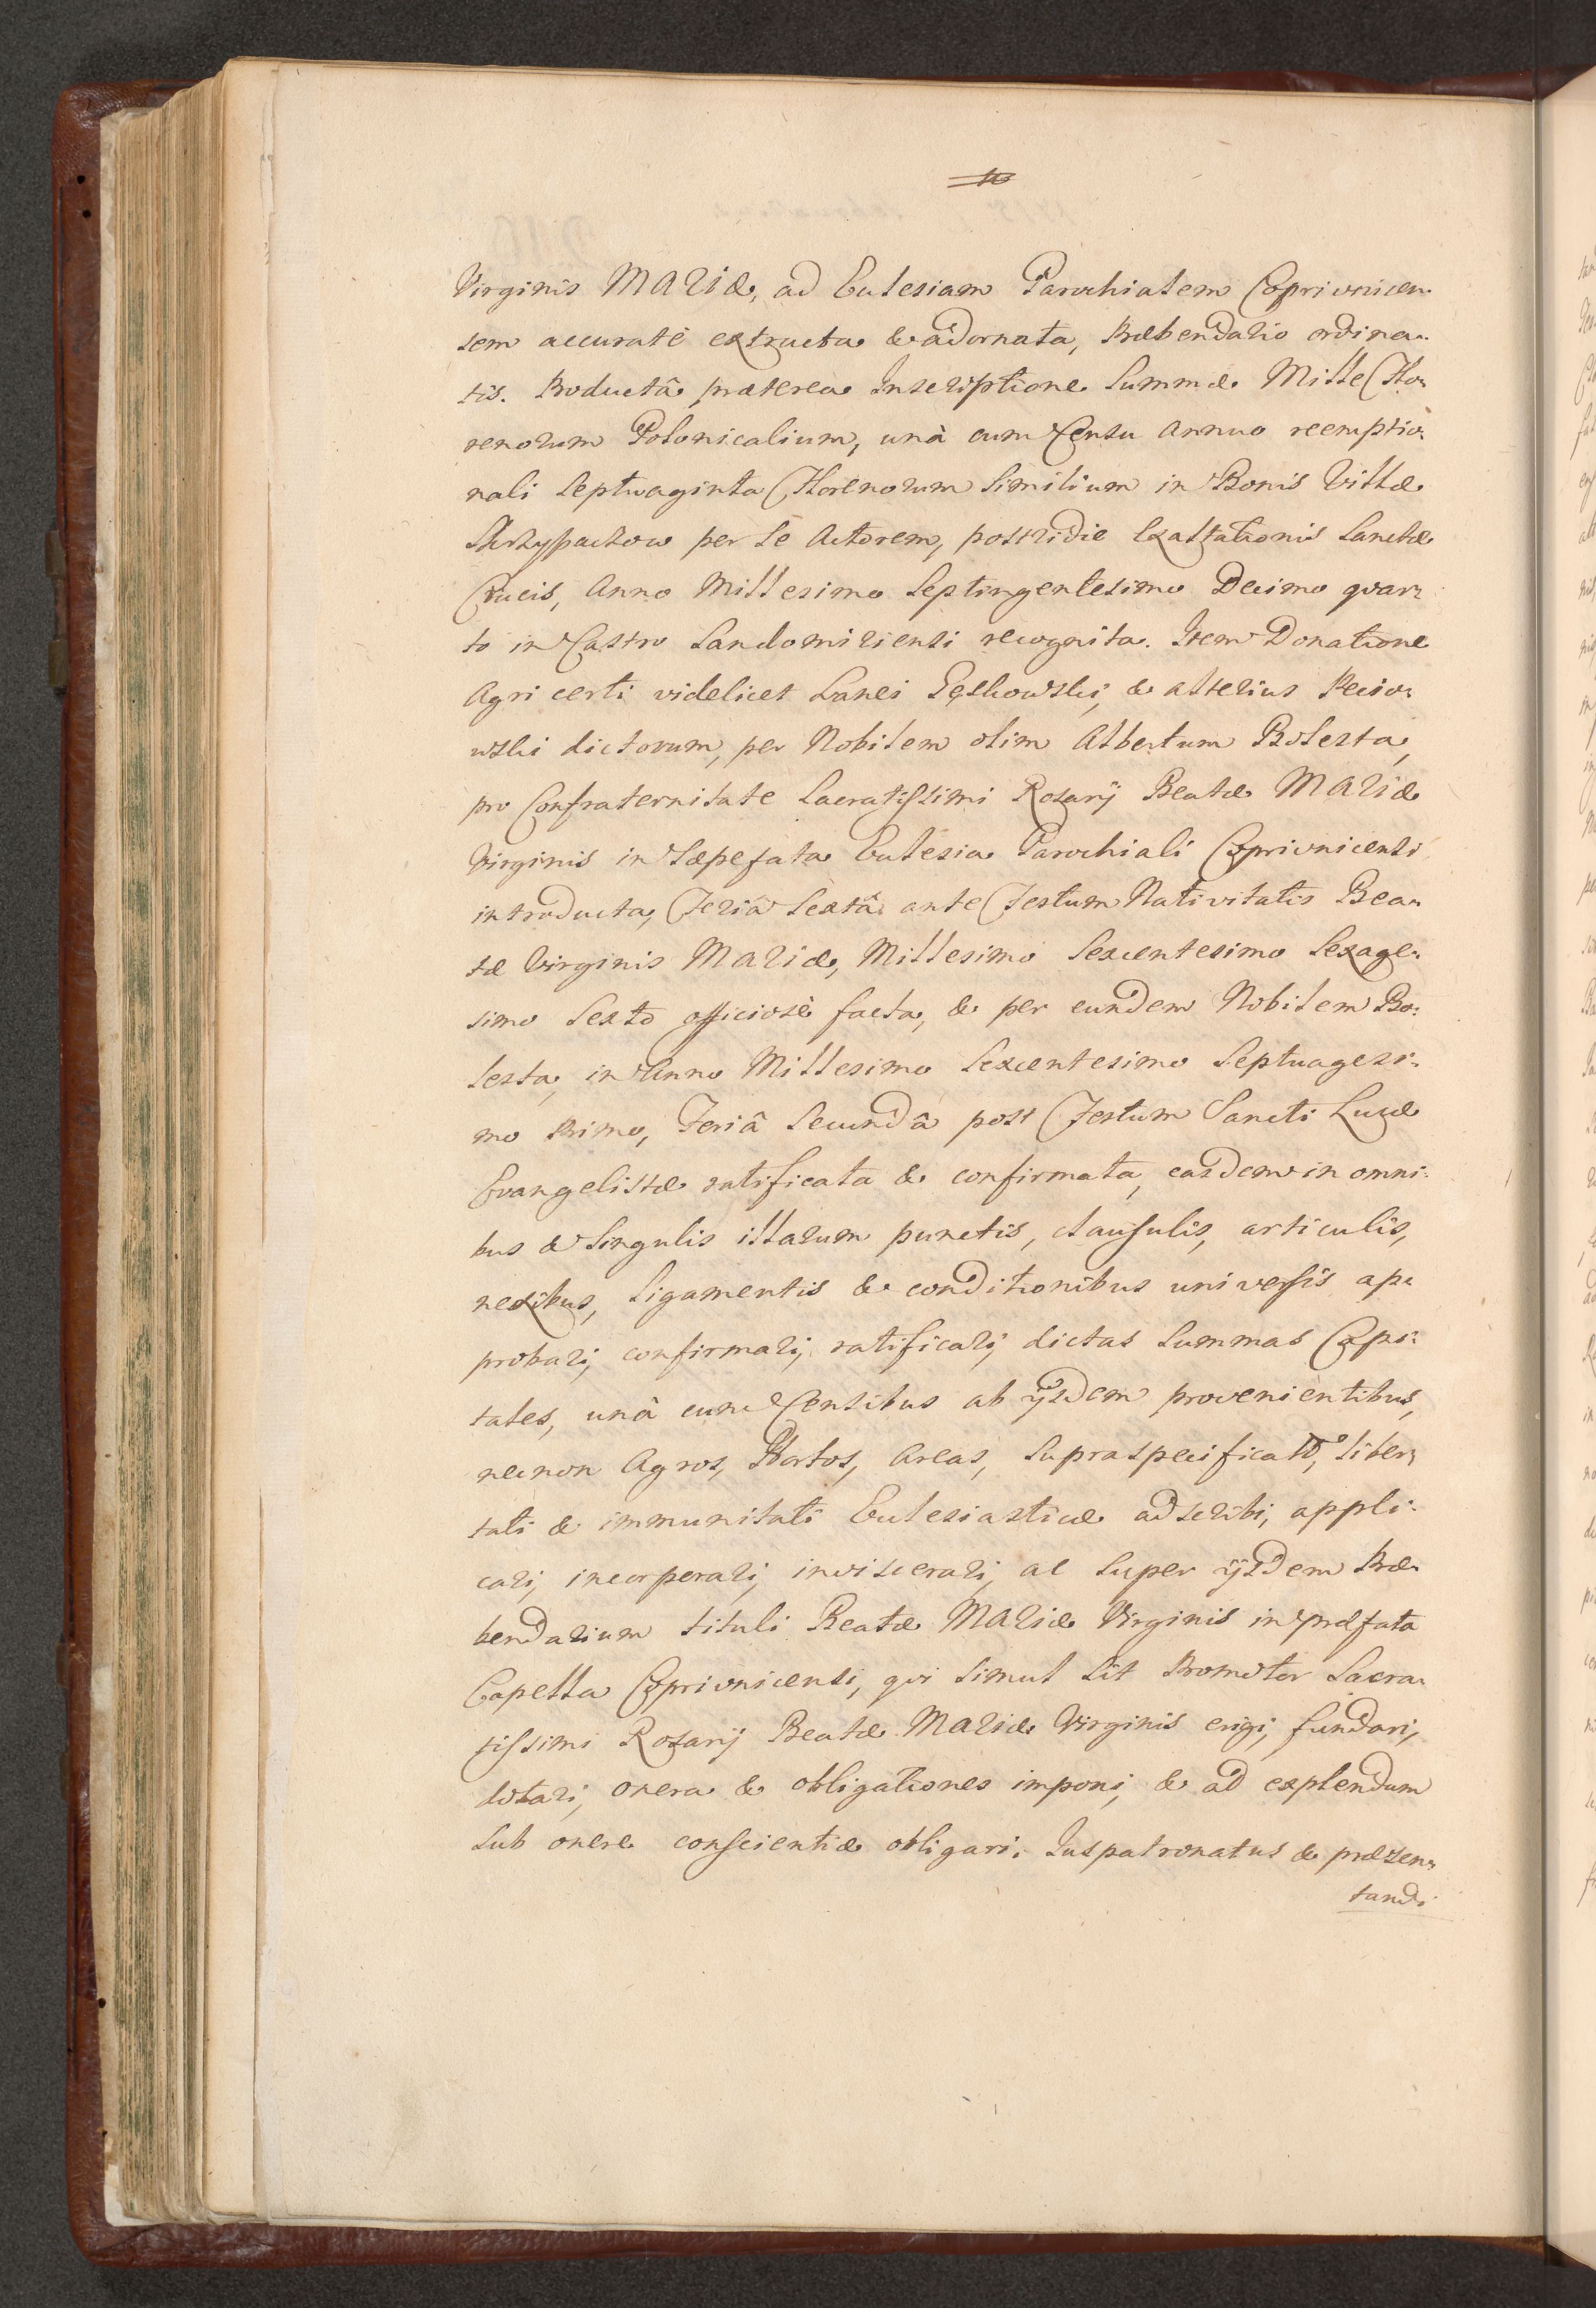 Virginis MARIÆ, ad Ecclesiam Parochialem Coprivnicen-
sem accuratè extructa & adornata, Præbendario ordina-
tis. Productâ præterea Inscriptione Summæ Mille Flo-
renorum Polonicalium, unà cum Censu annuo reemptio-
nali Septuaginta Florenorum Similium in Bonis Villæ
per Se Actorem, postridie Exaltationis Sanctæ
Crucis, Anno Millesimo Septingentesimo Decimo quar-
to in Castro Sandomiriensi recognita. Item Donatione
Agri certi videlicet Lanei & alterius
wski dictorum, per Nobilem olim Albertum Bolesta,
pro Confraternitate Sacratissimi Rosarij Beatæ MARIÆ
Virginis in Sæpefata Ecclesia Parochiali Coprivnicensi
introducta, Feriâ Sextâ ante Festum Nativitatis Bea-
tæ Virginis MARIÆ, Millesimo Sexcentesimo Sexage-
simo Sexto officiosè facta, & per eundem Nobilem Bo-
lesta, in Anno Millesimo Sexcentesimo Septuagesi-
mo Primo, Feriâ Secundâ post Festum Sancti Lucæ
Evangelistæ ratificata & confirmata, easdem in omni-
bus & Singulis illarum punctis, clausulis, articulis,
nexibus, ligamentis & conditionibus universis ap-
probari, confirmari, ratificari, dictas Summas Capi-
tales, unà cum Censibus ab ijsdem provenientibus,
necnon Agros, Hortos, Areas, Supraspecificatos, liber-
tati & immunitati Ecclesiasticæ adscribi, appli-
cari, incorporari, inviscerari, ac Super ijsdem Præ-
bendarium tituli Beatæ MARIÆ Virginis in præfata
Capella Coprivnicensi, qui Simul Sit Promotor Sacra-
tissimi Rosarij Beatæ MARIÆ Virginis erigi, fundari,
dotari, onera & obligationes imponi, & ad explendum
Sub onere conscientiæ obligari. Juspatronatus & præsen-
tandi